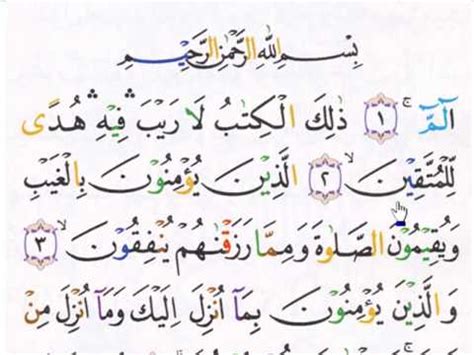 بِسْمِ اللّٰهِ الرَّحْمٰنِ الرَّحِيْمِ
الٓمّٓ ۚ ١ ذٰلِكَ الْكِتٰبُ لَا رَيْبَ ۛ فِيْهِ ۛ هُدًى
لِّلْمُتَّقِيْنَ ۙ ٢ الَّذِيْنَ يُؤْمِنُوْنَ بِالْغَيْبِ
وَيُقِيْمُوْنَ الصَّلٰوةَ وَمِمَّا رَزَقْنٰهُمْ يُنْفِقُوْنَ ۙ ٣
وَالَّذِيْنَ يُؤْمِنُوْنَ بِمَآ اُنْزِلَ اِلَيْكَ وَمَآ اُنْزِلَ مِنْ